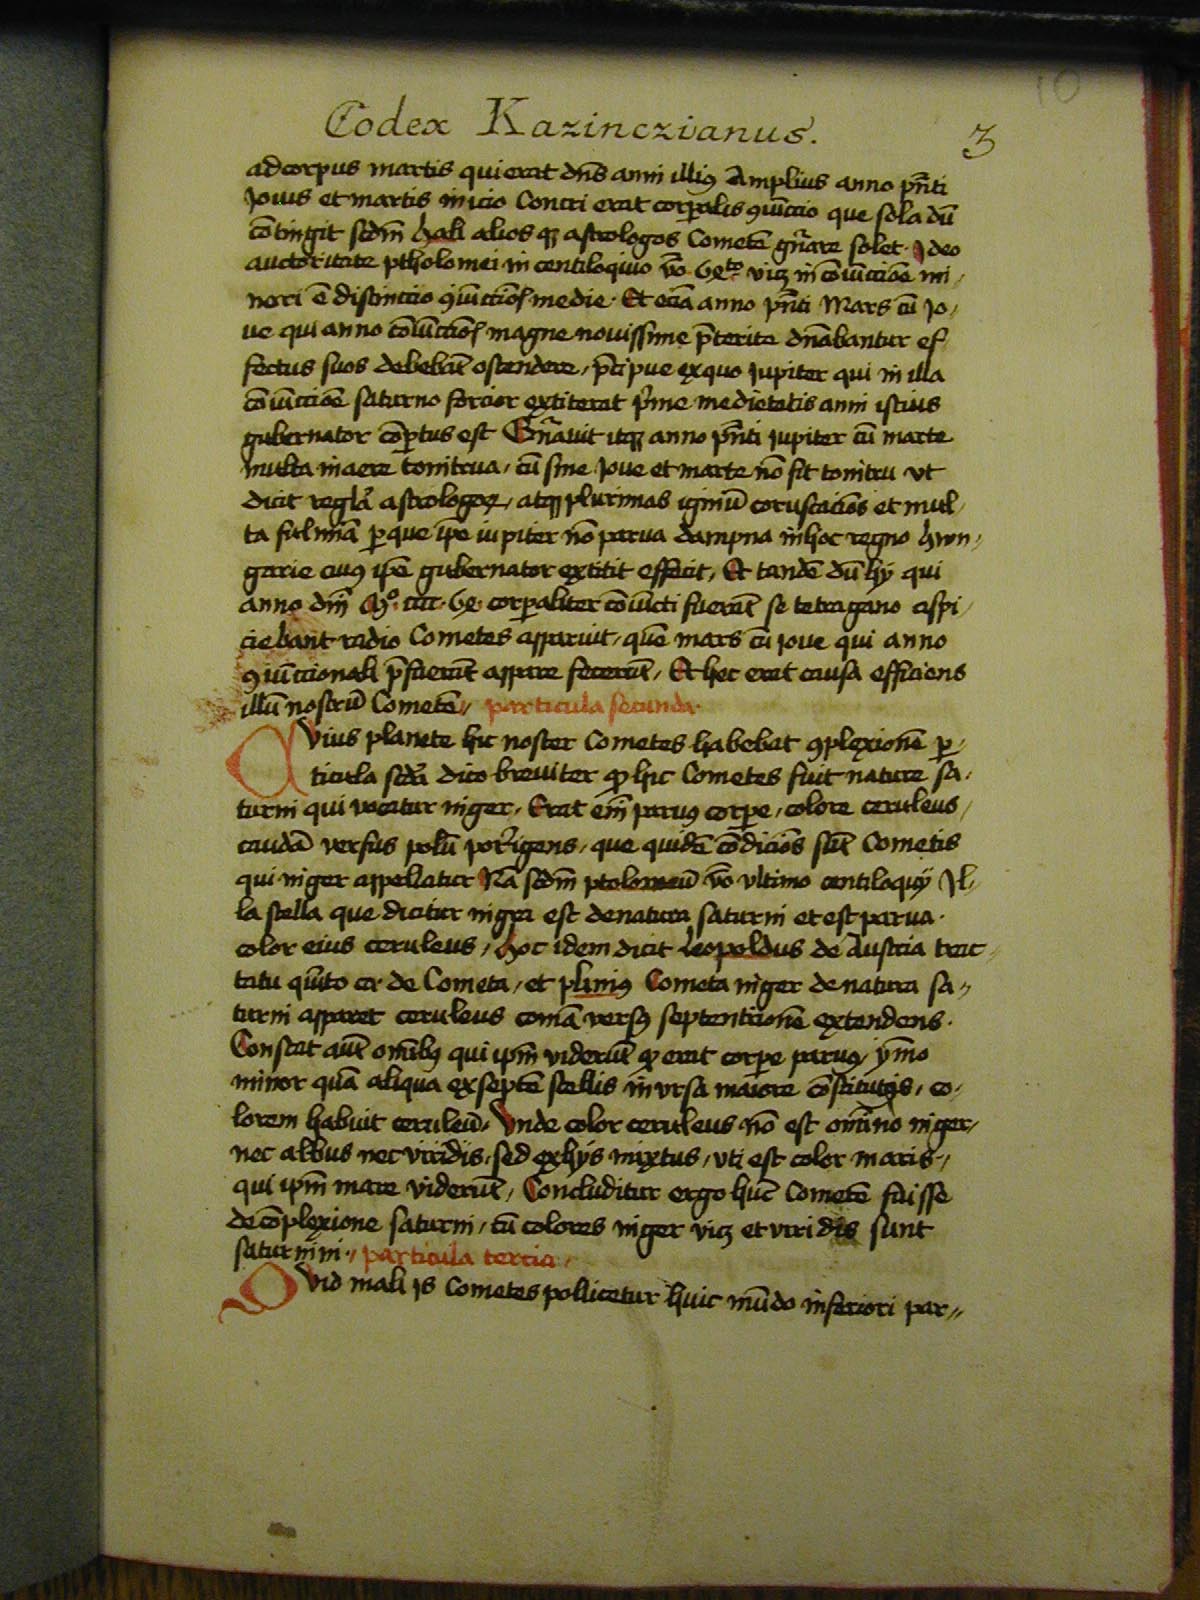 10
Codex Kazinczianus.
3
ad corpus martis qui erat dn̄s anni illiꝰ Amplius anno pn̄ti
Jouis et martis inicio Cancri erat corꝑalis ꝯiūctio que sola dū
cōtingit scdm̄ hali alios qꝫ astrologos Cometē gn̄are solet. Ideo
auctoritate ptholomei in centiloquio vͦo viꝫ in cōiūcciōe mi,
nori ē distinctio ꝯiūctiōꝭ medie. Et eciā anno pn̄ti Mars cū Jo,
ue qui anno cōiūctiōꝭ magne nouissime p̄terite dn̄abantur ef
fectus suos debebāt ostendere, p̄cipue ex quo Jupiter qui in illa
cōiūcciōe saturno forcior extiterat p̄me medietatis anni istius
gubernator cōꝑtus est Gn̄auit itaqꝫ anno pn̄ti Jupiter cū marte
multa in aere tonitrua, cū sine Joue et marte nō fit tonitru vt
dicit regl̄a astrologoꝝ, atqꝫ plurimas igniū coruscaciōs et mul,
ta fulmīa ꝑ que ip̄e iupiter nō parua dampna in hoc regno hwn,
garie cuiꝰ ip̄e gubernator extitit effecit, Et tandē dū hÿ qui
anno dn̄i Mͦ corꝑaliter cōiūcti fuerāt se tetragano aspi,
ciebant radio Cometes apparuit, quē mars cū ioue qui anno
ꝯiūccionali p̄fuerūt appare fecerūt, Et hec erat causa efficiens
illū nostrū Cometē, particula secunda.
Cuius planete hic noster Cometes habebat ꝯplexionē ꝑ,
ticula scd̄a dico breuiter ꝙ hic Cometes fuit nature sa,
turni qui vocatur niger, Erat em̄ paruꝰ corꝑe, colore ceruleus,
caudā versus polū porrigens, que quidē cōdiciōs sūt Cometis
qui niger appellatur Nā scdm̄ ptolomeū vͦo vltimo centiloquÿ Il,
la stella que dicitur nigra est de natura saturni et est parua.
color eius ceruleus, hoc idem dicit Leopoldus de Austria trac
tatu quīto ca de Cometa, et pliniꝰ Cometa niger de natura sa,
turni apparet ceruleus comā versꝰ septentrionē extendens.
Constat autē omībꝰ qui ipm̄ viderūt ꝙ erat corꝑe paruꝰ, ÿmo
minor quā aliqua ex septē stellis in vrsa maiore cōstitutis, co,
lorem habuit ceruleū. Vnde color ceruleus nō est om̄ino niger,
nec albus nec viridis, sed ex hÿs mixtus, vti est color maris,
qui ipm̄ mare viderūt, Concluditur ergo hūc Cometē fuisse
de cōplexione saturni, cū colores niger viꝫ et viridis sunt
saturnini, particula tercia.
Quid mali is Cometes pollicetur huic mūdo inferiori par,